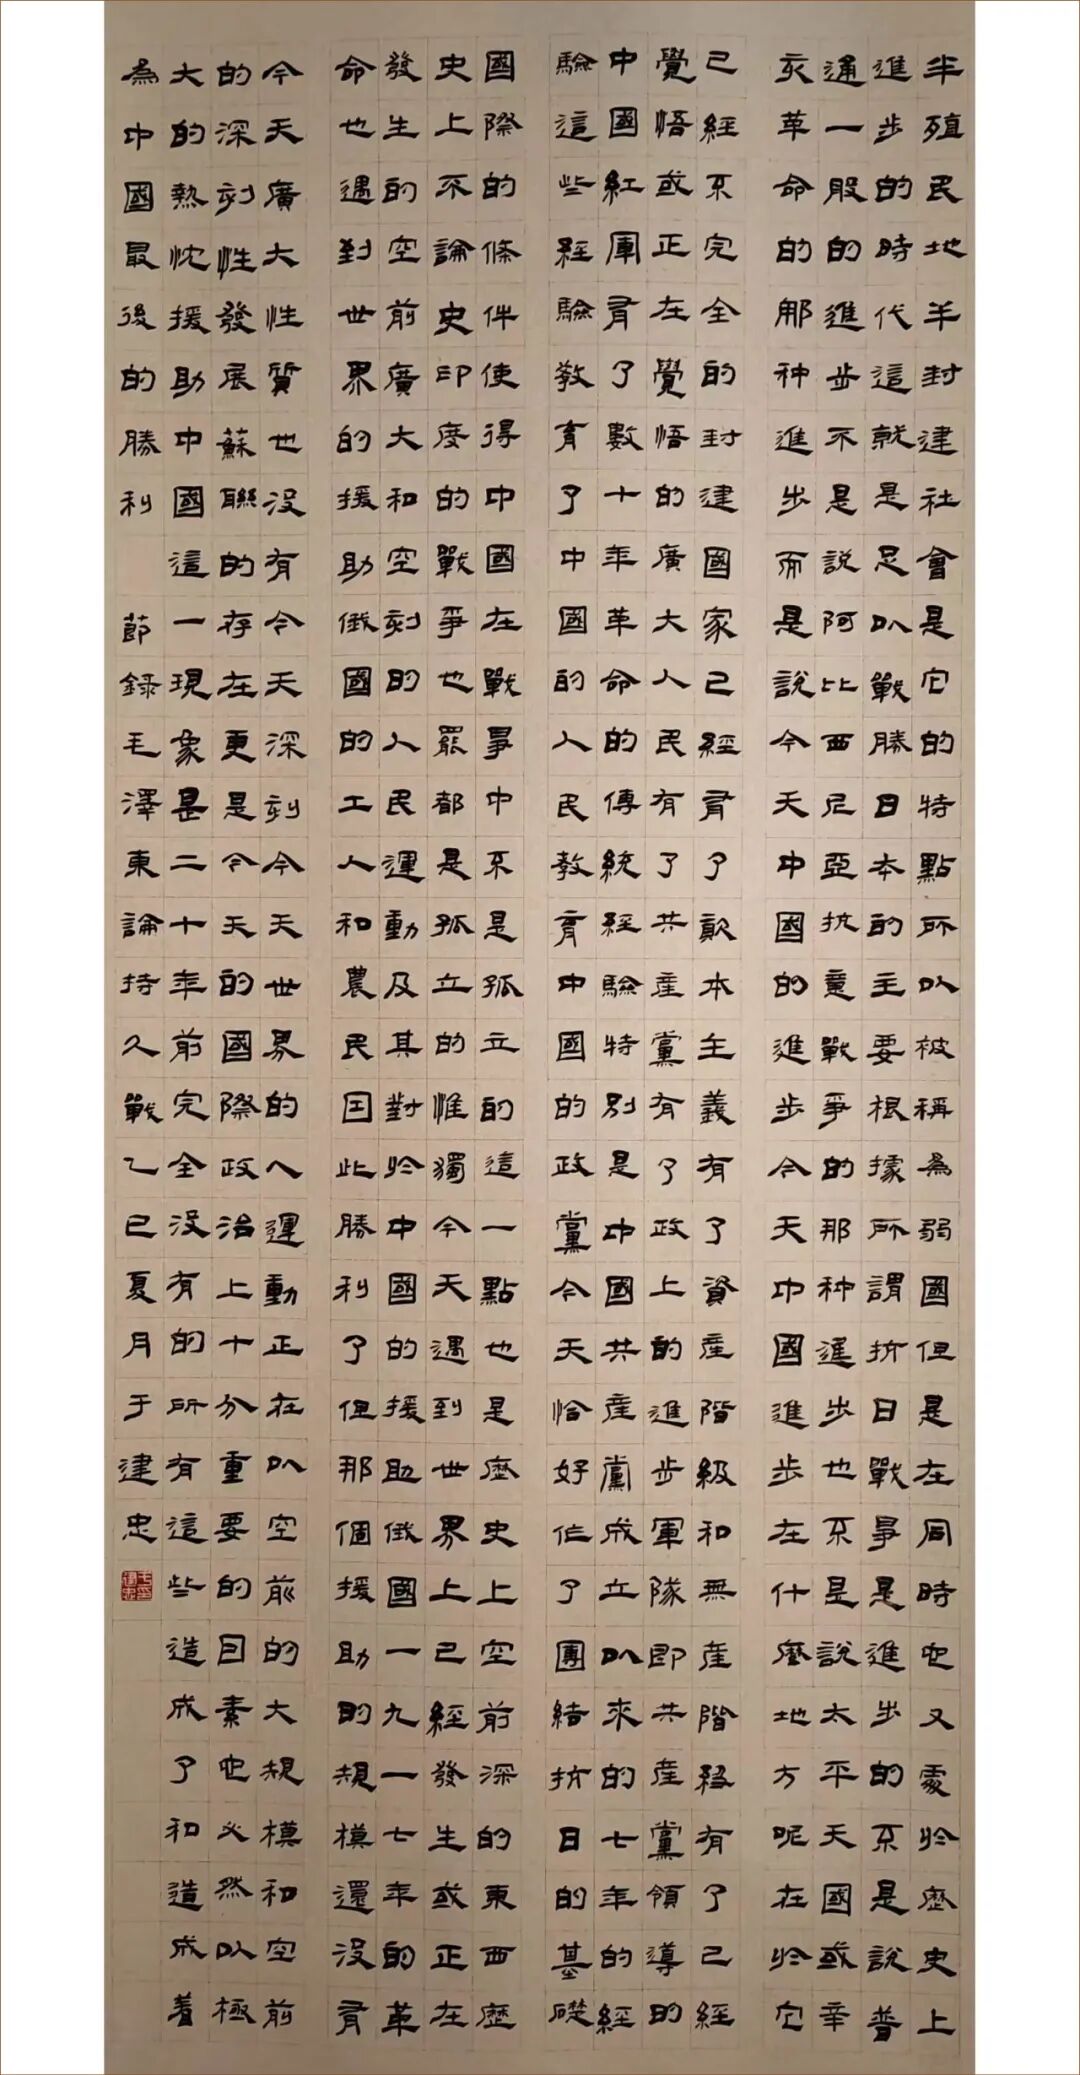 半殖民地半封建社會是它的特點所以被稱為弱國但是在同時它又處於歷史上
進步的時代這就是足以戰勝日本的主要根據所謂抗日戰爭是進步的不是說普
通一般的進步不是說阿比西尼亞抗意戰爭的那种進步也不是說太平天國或辛
亥革命的那种進步而是說今天中國的進步今天中國進步在什麼地方呢在於它
已經不完全的封建國家已經有了資本主義有了資產階級和無產階級有了已經
覺悟或正在覺悟的廣大人民有了共產黨有了政上的進步軍隊即共產黨領導的
中國紅軍有了數十年革命的傳統經驗特別是中國共產黨成立以來的七年的經
驗這些經驗教育了中國的人民教育中國的政黨今天恰好作了團結抗日的基礎
國際的條件使得中國在戰爭中不是孤立的這一點也是歷史上空前深的東西歷
史上不論史印度的戰爭也罷都是孤立的惟獨今天遇到世界上已經發生或正在
發生的空前廣大和空刻的人民運動及其對於中國的援助俄國一九一七年的革
命也遇到世界的援助俄國的工人和農民因此勝利了但那個援助的規模還没有
今天廣大性質也没有今天深刻今天世界的人運動正在以空前的大規模和空前
的深刻性發展蘇聯的存在更是今天的國際政治上十分重要的因素它必然以極
大的熱忱援助中國這一現象是二十年前完全没有的所有這些造成了和造成着
為中國最後的勝利 節錄毛澤東論持久戰乙巳夏月于建忠